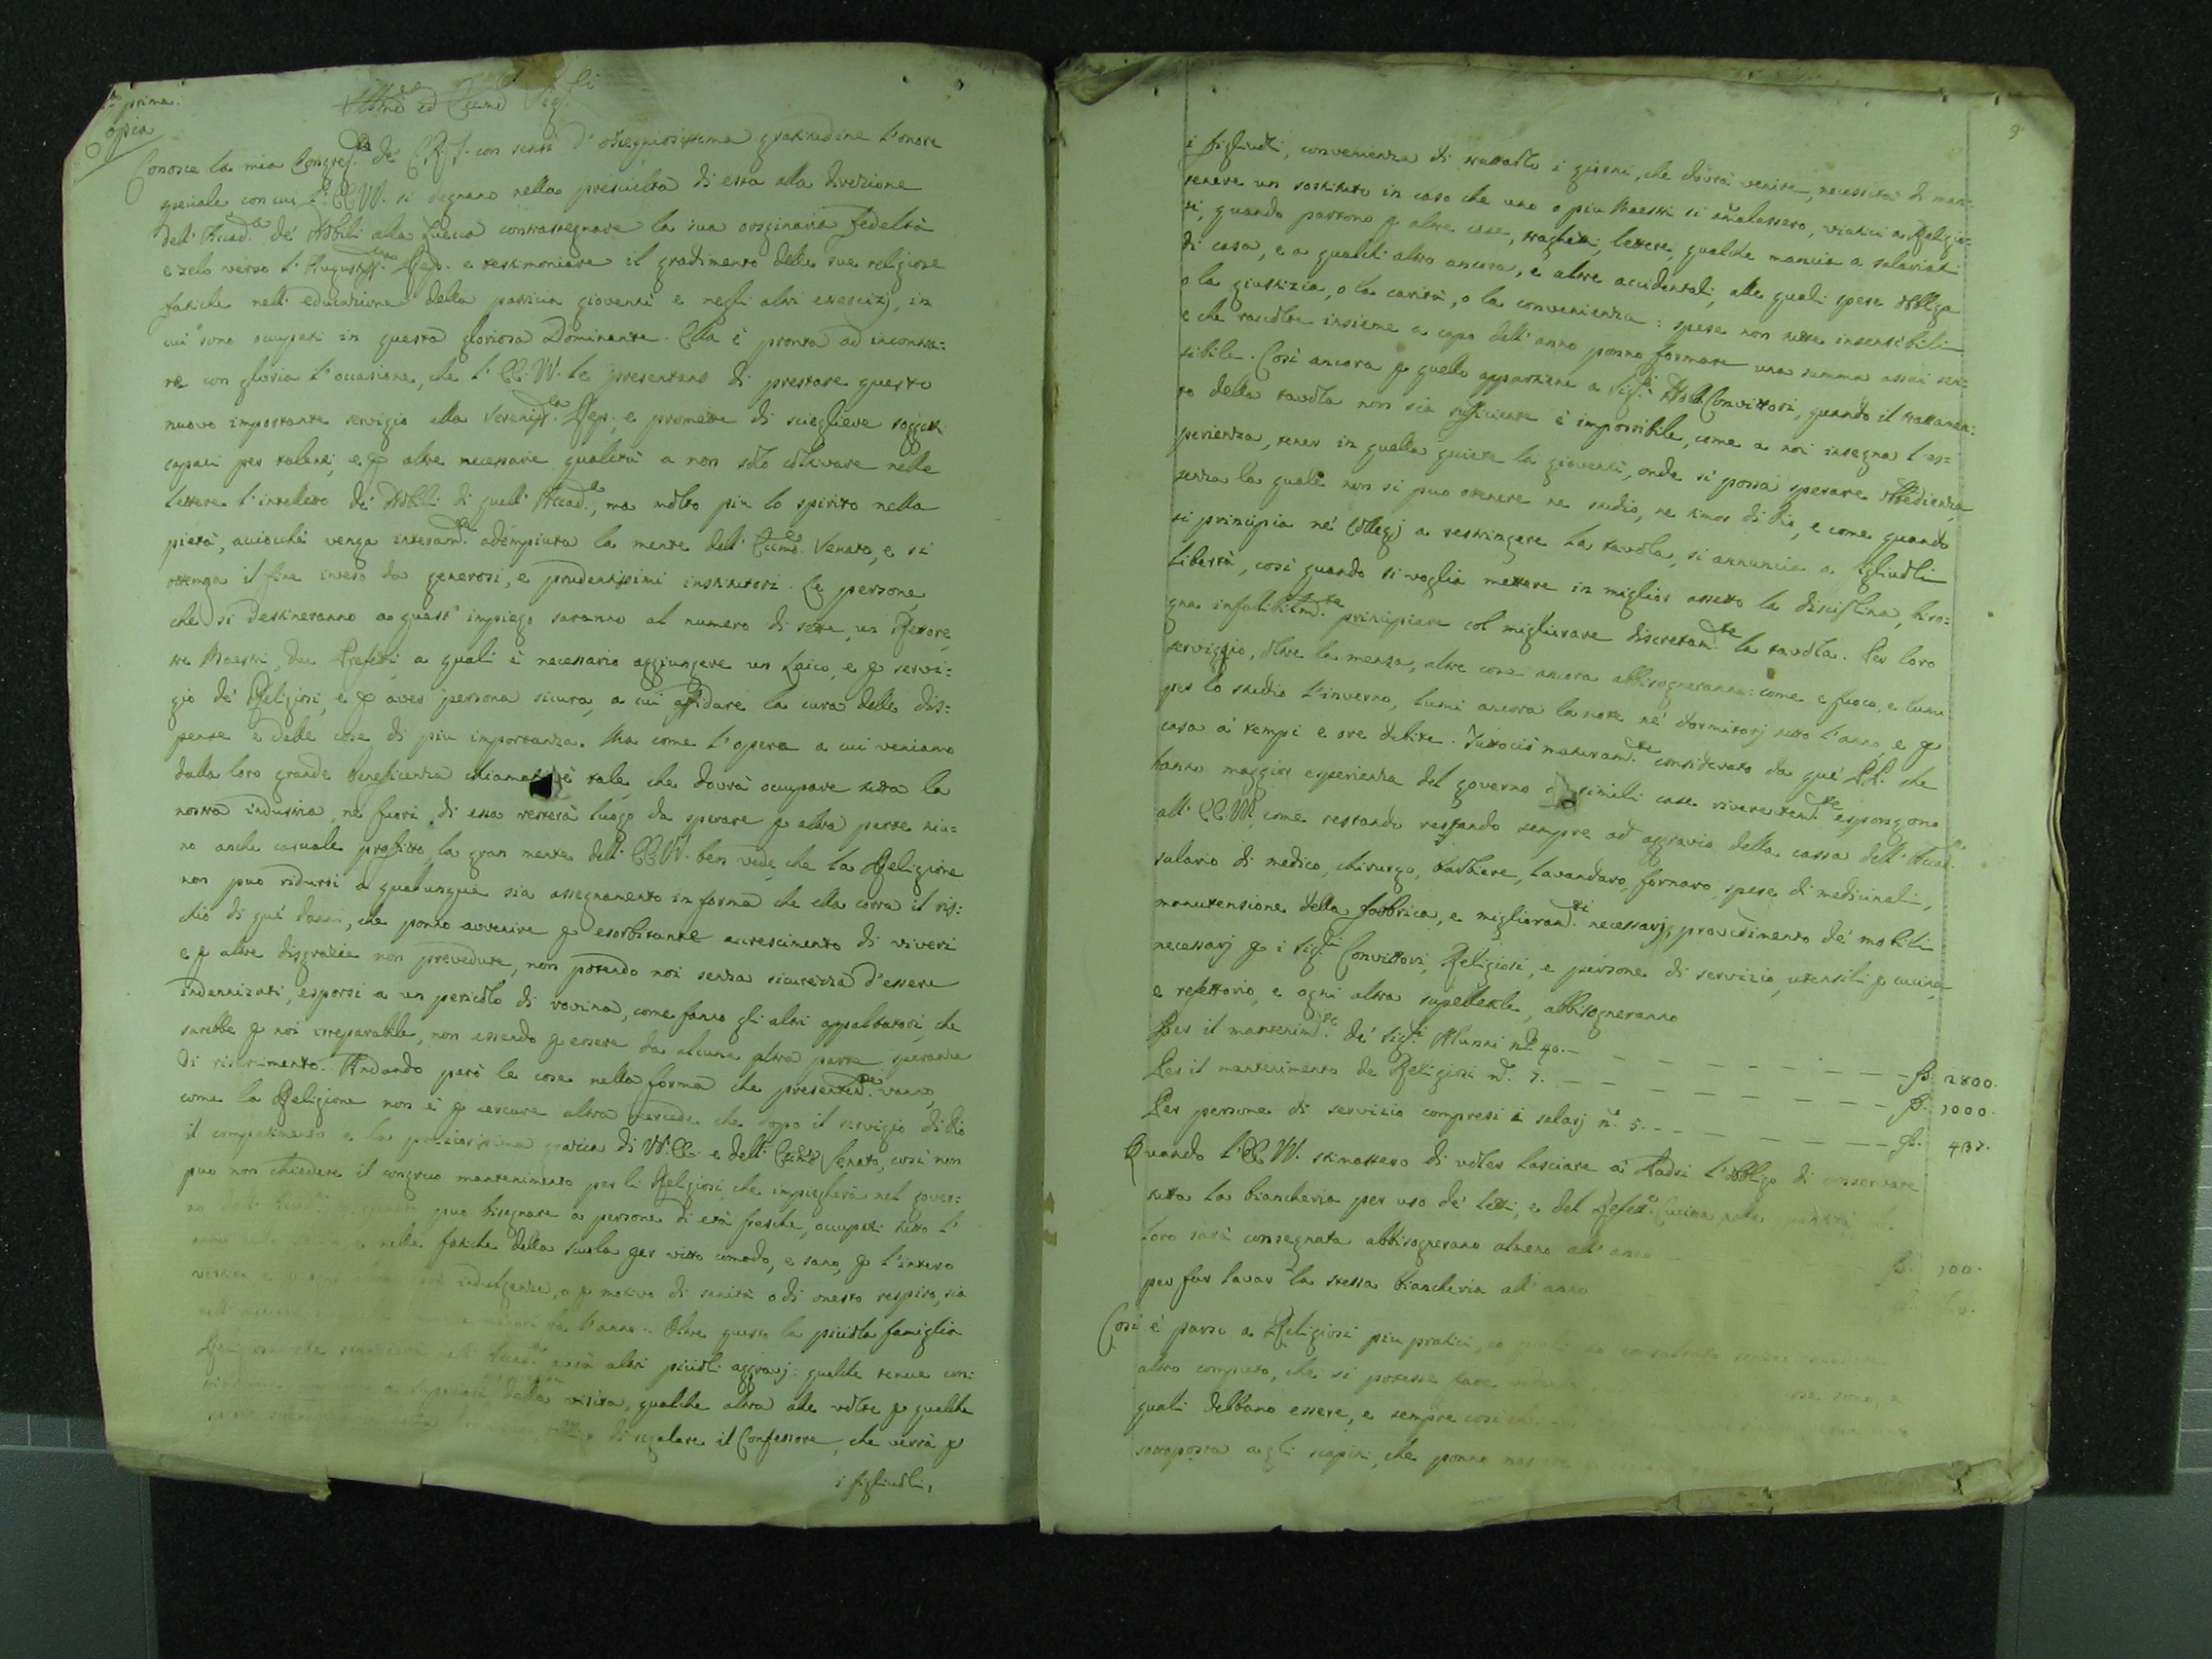 prima
Copia
Illmi ed Eccmi Sig.ri
Conosce la mia Congreg.ne de' C.R.S. con sensi d'ossequiosissima gratitudine l'onore
speciale con cui l'EE.VV. si degnano nella presciielta di essa alla direzione
dell'Accad.a de' Nobili alla Zuecca contrassegnare la sua originaria fedeltà
e zelo verso l'Augustiss.ma Rep. e testimoniare il gradimento delle sue religiose
fatiche nell'educazione della patricia gioventù e negli altri esercizj, in
cui sono occupati in questa gloriosa Dominante. Ella è pronta ad incontra=
re con gloria l'occasione, che l'EE.VV. le presentano di prestare questo
nuovo importante servigio alla Sereniss.ma Rep. e promette di sciegliere soggetti
capaci per talenti, e p altre necessarie qualità a non solo coltivare nelle
lettere l'intelletto de' Nobili di quell'Accad.a, ma molto piu lo spirito nella
pietà, acciochè venga interam.te adempiuta la mente dell'Eccmo Senato, e si
ottenga il fine inteso da generosi, e prudentissimi institutori. Le persone,
che si destineranno a quest'impiego saranno al numero di sette, un Rettore,
tre Maestri, due Prefetti a quali è necessario aggiungere un Laico, e p servi=
gio de' Religiosi, e p aver persona sicura, a cui affidare la cura delle dis=
pense e delle cose di piu importanza. Ma come l'opera a cui veniamo
dalla loro grande beneficenza chiamati è tale, che dovrà occupare tutta la
nostra industria, nè fuori di essa resterà luogo da sperare p altra parte niu=
no anche casuale profitto, la gran mente dell'EE.VV. ben vede, che la Religione
non può ridursi a qualunque sia assegnamento in forma che ella corra il ris=
chio di que' danni, che ponno avvenire p esorbitante accrescimento di viveri
e p altre disgrazie non prevedute, non potendo noi senza sicurezza d'essere
indennizati, esporsi a un pericolo di rovina, come fanno gli altri appaltatori, che
sarebbe p noi irreparabile, non essendo p essere da alcuna altra parte speranza
di risarcimento. Andando però le cose nella forma che presentem.te vanno,
come la Religione non è p cercare altra mercede che dopo il servigio di Dio
il compatimento e la preziosissima grazia di VV.EE. e dell'Eccmo Senato, così non
può non chiedere il congruo mantenimento per li Religiosi, che impiegherà nel gover=
può bisognare a persone di età fresche, occupati tutto l'
nelle fatiche della scuola per vitto comodo, e sano, p l'intero
indulgenza, o p motivo di sanità o di onesto respiro, sia
l'anno. Oltre questo la picciola famiglia
Religiosa che nell'Accad.a avrà altri piccioli aggravj: qualche tenue con=
a superiori della visita, qualche altra alle volte p qualche
di regalare il Confessore, che verrà p
i figliuoli,
9
i figliuoli, convenienza di trattarlo i giorni, che dovrà venire, necessità di man=
tenere un sostituto in caso che uno o piu Maestri si amalassero, viatici a Religio=
si, quando partono p altre case, traghetti, lettere, qualche mancia a salariati
di casa, e a qualch'altro ancora, e altre accidentali, alle quali spese obbliga
o la giustizia, o la carità, o la convenienza: spese non tutte insensibili
e che raccolte insieme a capo dell'anno ponno formare una summa assai sen=
sibile. Così ancora p quello appartiene a Sig.ri Nob. Convittori, quando il trattamen=
to della tavola non sia sufficiente è impossibile, come a noi insegna l'es=
perienza, tener in quella quiete la gioventù, onde si possa sperare obbedienza
senza la quale non si può ottenere ne studio, ne timor di Dio, e come quando
si principia ne' Collegj a restringere la tavola, si annuncia a figliuoli
libertà, così quando si voglia mettere in miglior assetto la disciplina, biso=
gna infalibilm.te principiare col migliorare discretam.te la tavola. Per loro
serviggio, oltre la mensa, altre cose ancora abbisogneranno: come e fuoco, e lumi
per lo studio l'inverno, lumi ancora la notte ne' dormitorj tutto l'anno, e p
casa a' tempi e ore debite. Tuttociò maturam.te considerato da que' PP. che
hanno maggior esperienza del governo simili case riverentem.te espongono
all'EE.VV. come restando restando sempre ad aggravio della cassa dell'Accad.a
salario di medico, chirurgo, barbiere, lavandaro, fornaro, spese di medicinali,
manutensione della fabbrica, e miglioram.ti necessarj, provedimento de' mobili
necessarj p i Sig.ri Convittori, Religiosi, e persone di servizio, utensili p cucina,
e refettorio, e ogni altra supellettile, abbisogneranno
Per il mantenim.to de' Sig.ri Alunni n.º 40. — — — — — — D. 2800.
Per il mantenimento de Religiosi n.º 7. — — — — — — D. 1000.
Per persone di servizio compresi i salarj n.º 5. — — — — — D. 437.
Quando l'EE.VV. stimassero di voler lasciare a' Padri l'obbligo di conservare
tutta la biancheria per uso de' letti, e del Refett.o Cucina
loro sarà consegnata abbisogneranno almeno all'anno — D. 100.
per far lavar la stessa biancheria all'anno
Così è parso a Religiosi piu pratici,
altro computo, che si potesse fare
quali debbano essere, e sempre così
sottoposta agli scapiti, che ponno